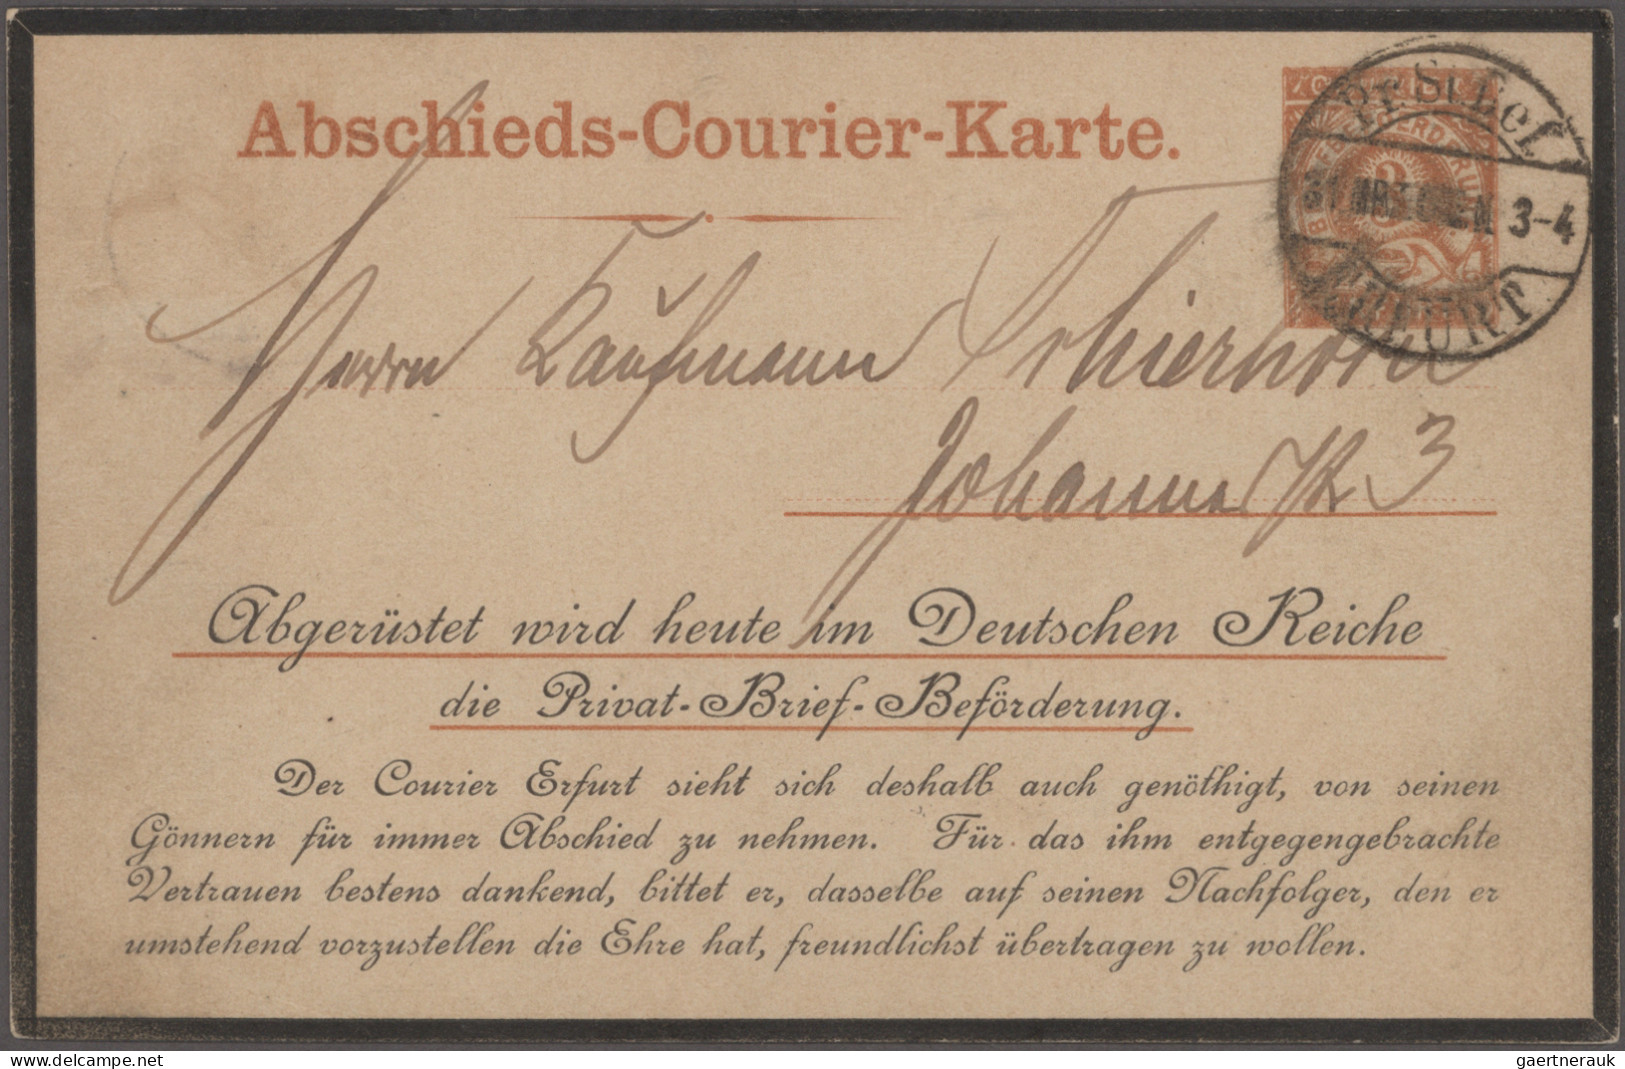 Abschieds-Courier-Karte.
Pr. St. Bef.
3-4
ERFURT
Herrn Kaufmann Schierhorn
Johannesstr 3
Abgerüstet wird heute im Deutschen Reiche
die Privat-Brief-Beförderung.
Der Courier Erfurt sieht sich deshalb auch genöthigt, von seinen
Gönnern für immer Abschied zu nehmen. Für das ihm entgegengebrachte
Vertrauen bestens dankend, bittet er, dasselbe auf seinen Nachfolger, den er
umstehend vorzustellen die Ehre hat, freundlichst übertragen zu wollen.
www.delcampe.net
gaertnerauk